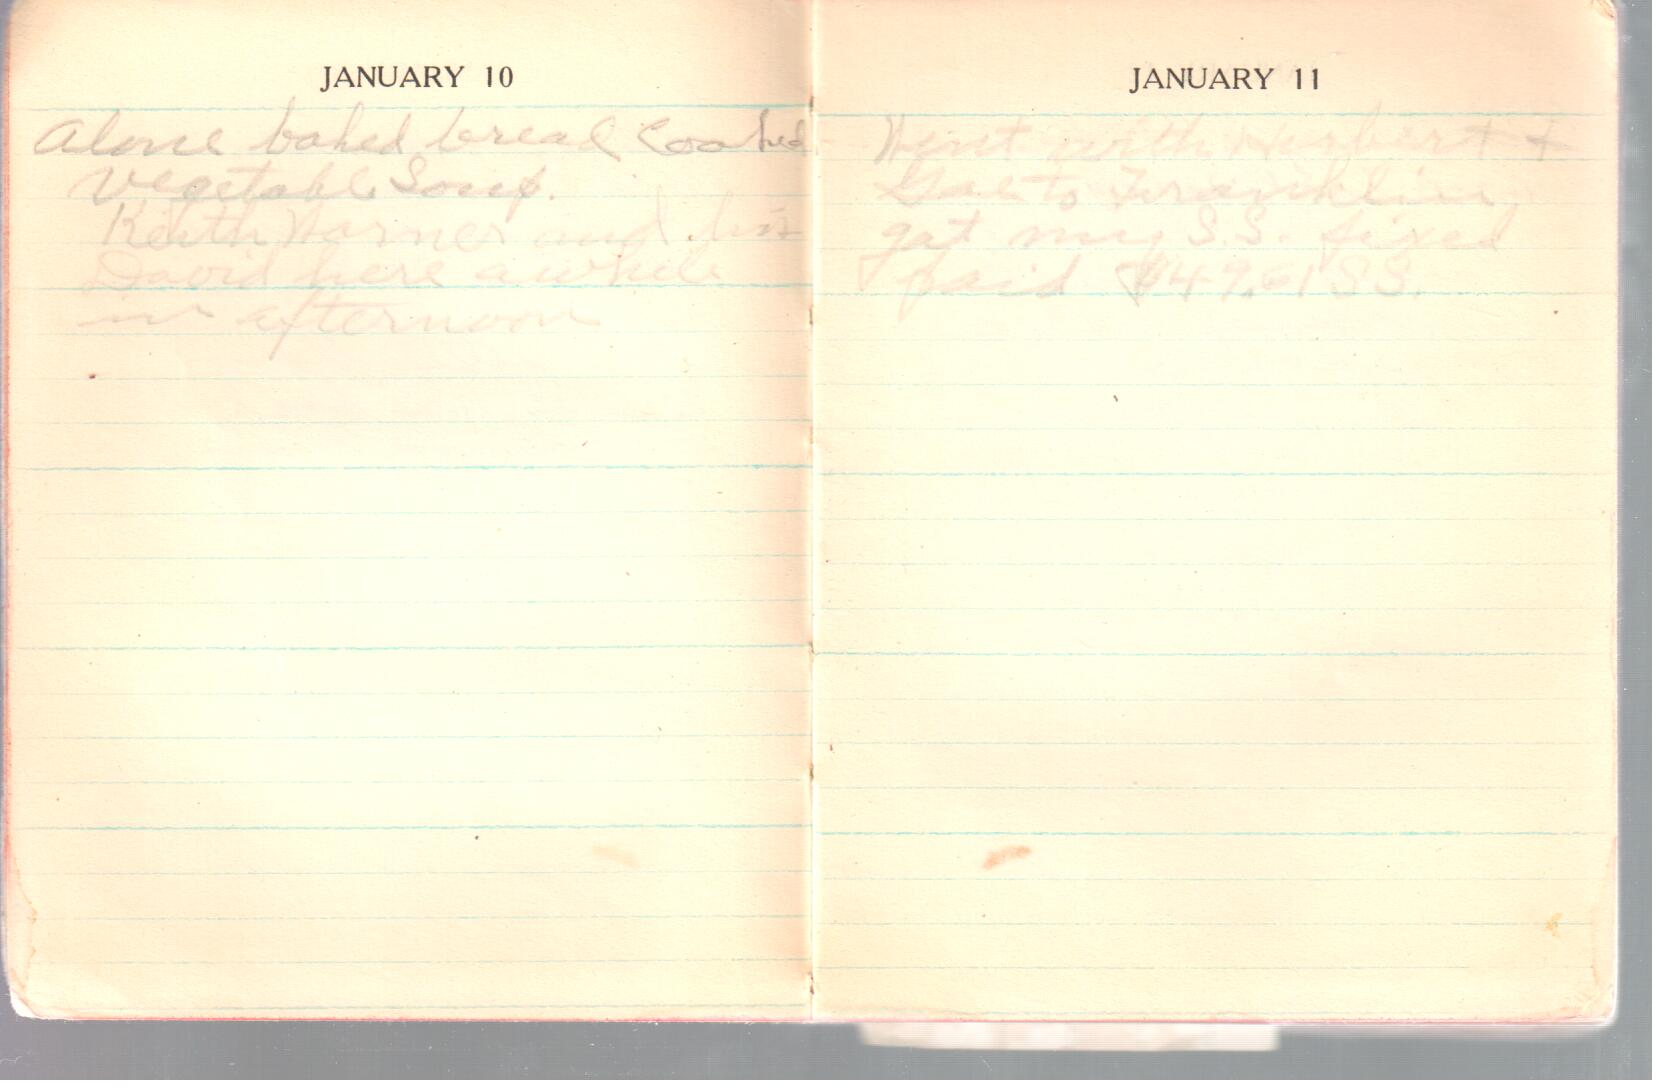 JANUARY 10
Alone baked bread Cooked
vegetable Soup.
Keith Warner and his
David here awhile
in afternoon
JANUARY 11
Went with Herbert +
to Franklin
got my S.S. fixed
paid $49.61 SS.